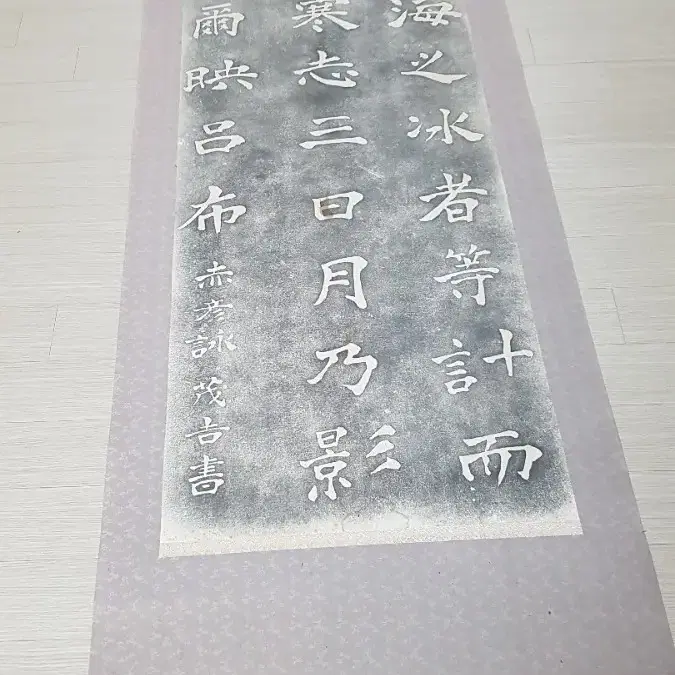 海之冰者等計而
寒志三日月乃影
爾映呂布 赤彦詠 茂吉書